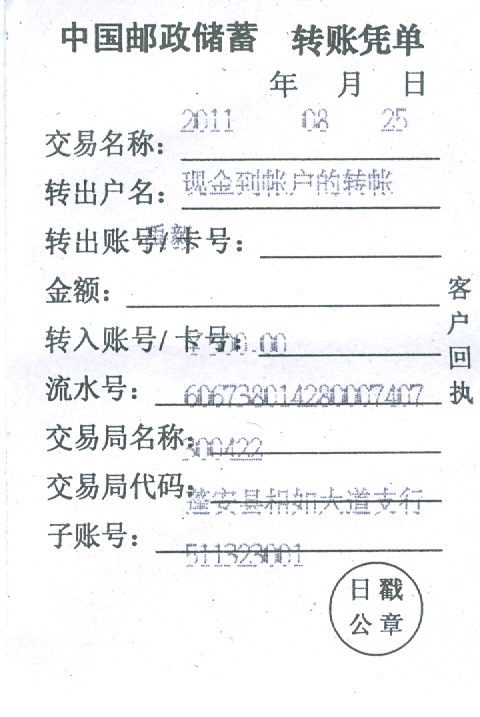 中国邮政储蓄 转账凭单
年 月 日
2011 08 25
交易名称：
现金到帐户的转帐
转出户名：
转出账号/卡号：
金额：
转入账号/卡号：
.00
流水号：
606738014280007407
交易局名称：
300422
交易局代码：
蓬安县相如大道支行
子账号：
511323001
客户回执
日戳
公章